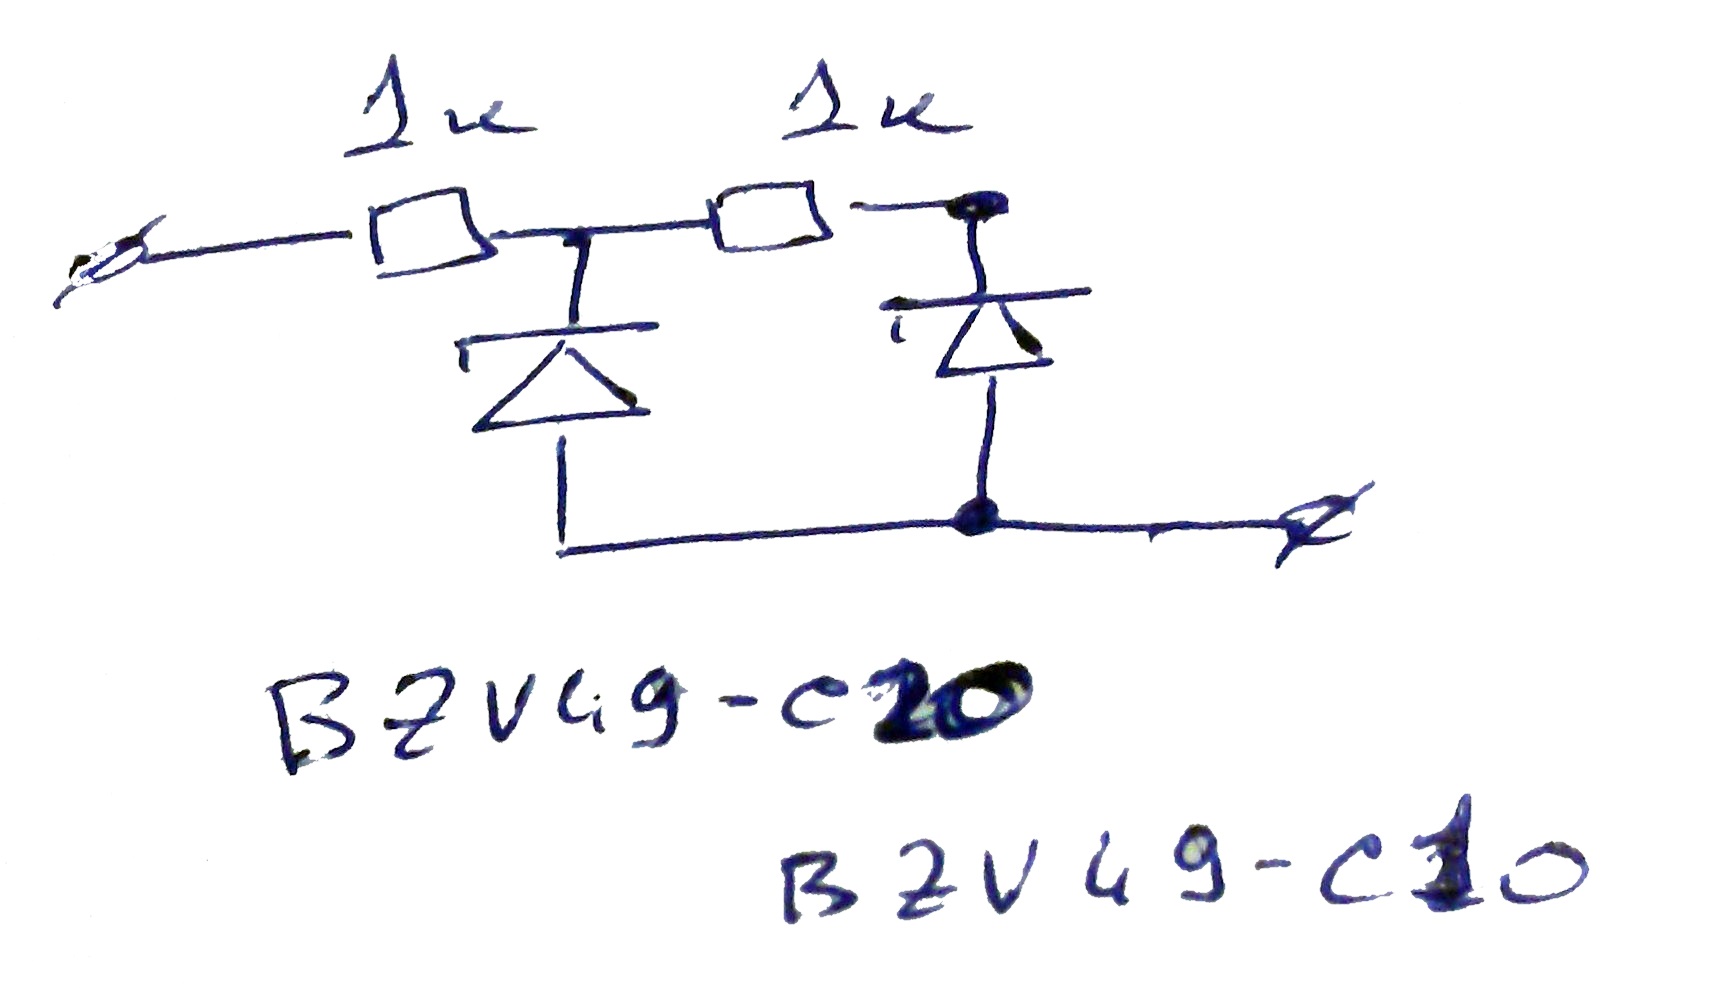 1k 1k
BZV49-C20
BZV49-C10